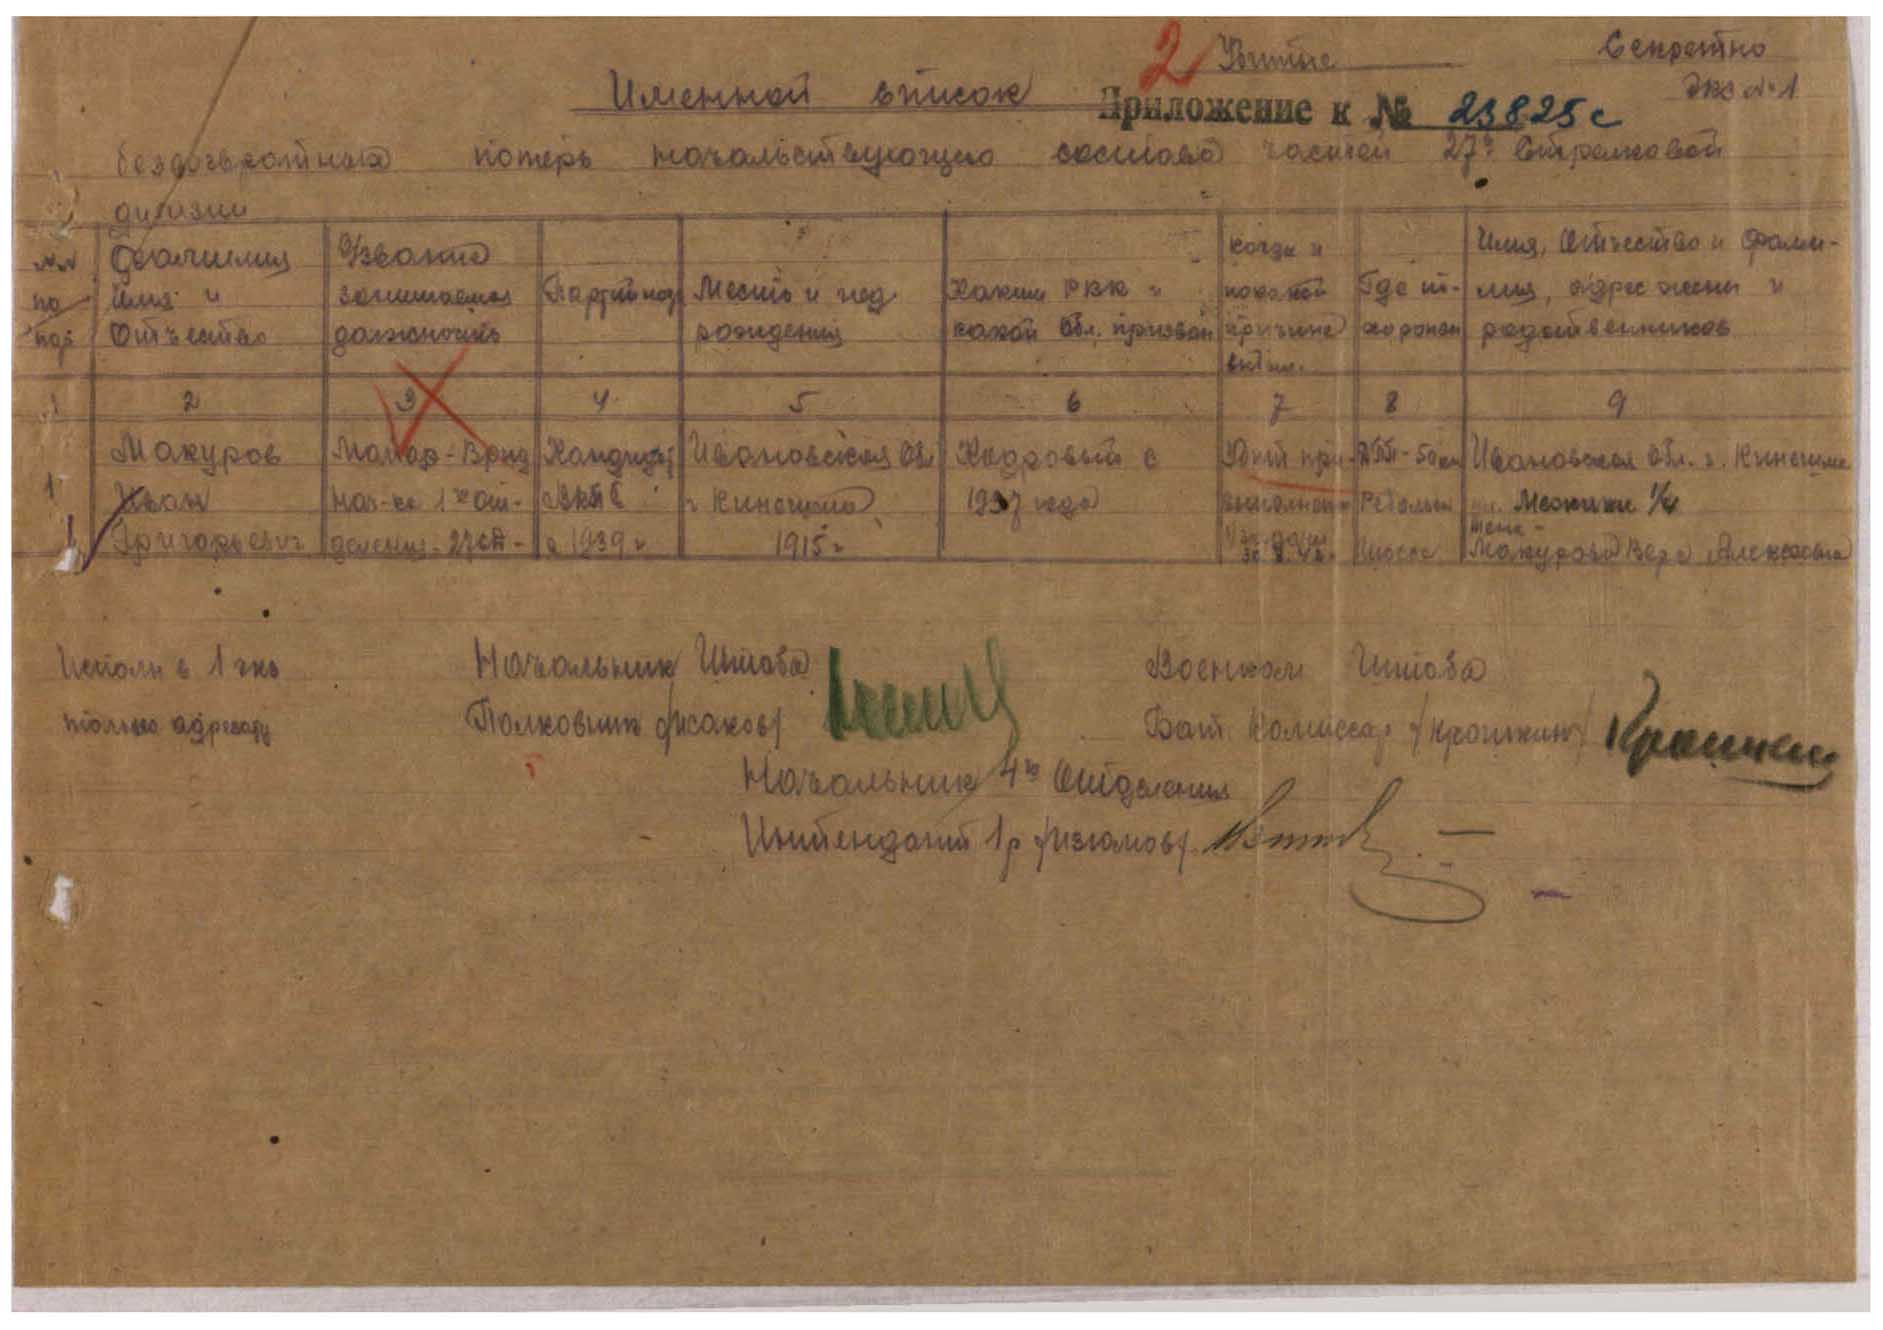 2 Убитые Секретно
Экз №1
Именной список
Приложение к № 23825с
безвозвратных потерь начальствующего состава частей 27й Стрелковой
дивизии
№№ по пор
Фамилия Имя и Отчество
Звание занимаемая должность
Партийность
Место и год рождения
Каким РВК и какой Обл. призван
когда и по какой причине выбыл.
Где по-хоронен
Имя, Отчество и Фами-лия, адрес жены и родственников
1 2 3 4 5 6 7 8 9
1
Макуров Иван Григорьевич
Майор - Врид нач-ка 1го От-деления - 27 сд -
Кандидат ВКПб с 1939 г
Ивановская Обл г Кинешма 1915 г
Кадровый с 1937 года
Убит при
50 км Ребольск шоссе
Ивановская Обл. г. Кинешма
ул. 1/4
жена -
Макурова Вера Алексеевна
Исполн в 1 экз
только адресату
Начальник Штаба
Полковник /Исаков/
Военком Штаба
Бат. Комиссар /Крошкин/
Начальник 4го Отделения
Интендант 1р /Изюмов/